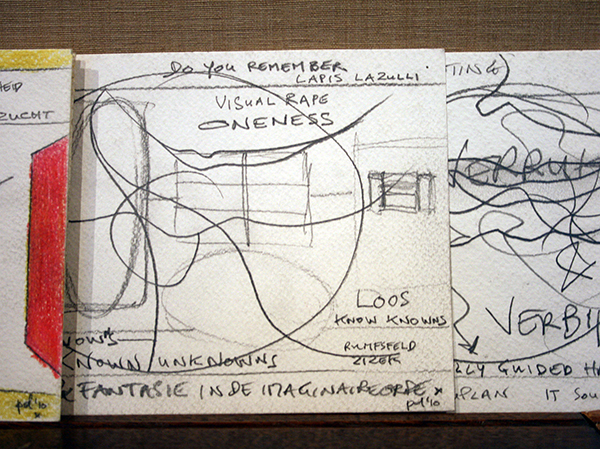 HEID
ZUCHT
pd '10
DO YOU REMEMBER
LAPIS LAZULLI.
VISUAL RAPE
ONENESS
LOOS
KNOW KNOWNS
KNOWN UNKNOWNS
RUMFSFELD
ZIZEK
FANTASIE IN DE IMAGINAIRE ORDE
pd '10
TING
VERBI
LLY GUIDED H
PLAN IT SOU